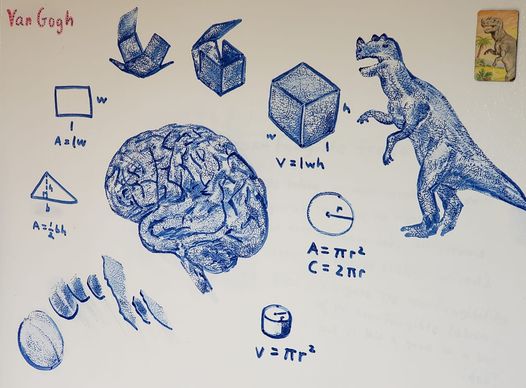 Van Gogh
w
l
A=lw
h
b
A=½bh
h
w
l
V=lwh
r
A=πr²
C=2πr
r
V=πr²